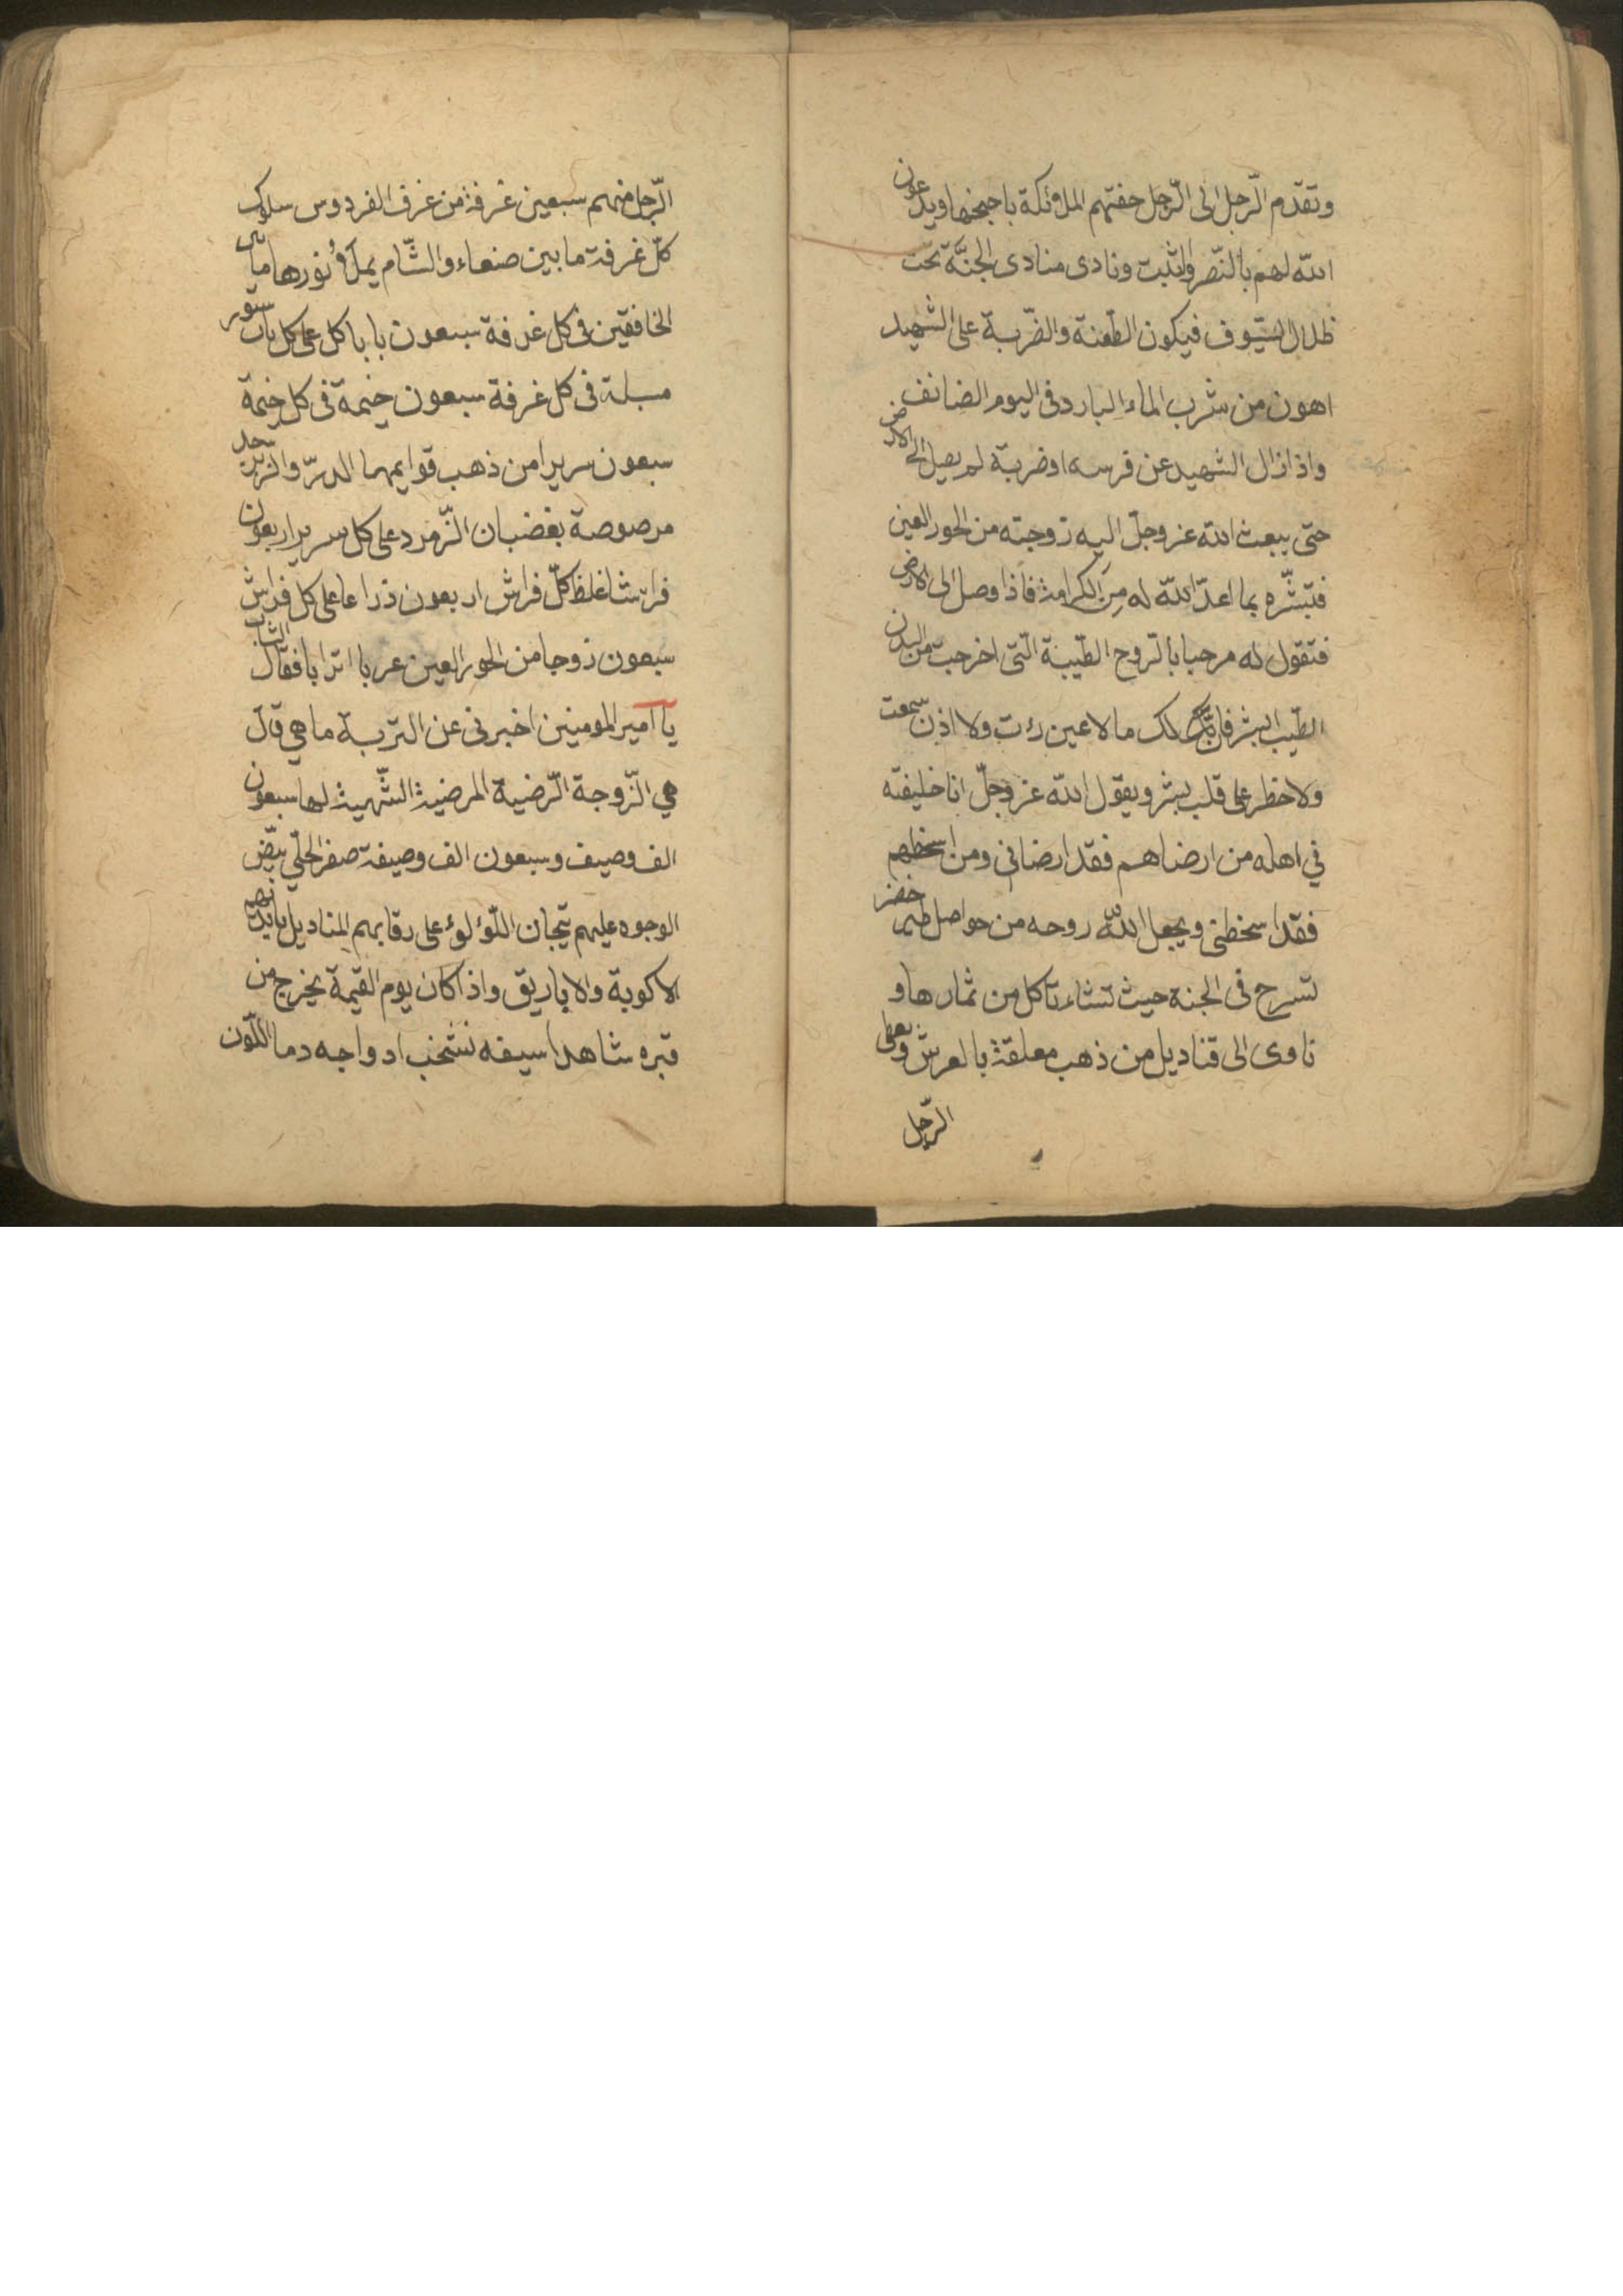 وتقدّم الرّجل الى الرّجل حفتهم الملائكة باجنحها ويدعون
الله لهم بالنّصر والتثبت ونادى منادى الجنّة تحت
ظلال السّيوف فيكون الطّعنة والضّربة على الشهيد
اهون من شرب الماء البارد فى اليوم الصائف
واذا زال الشهيد عن فرسه او ضربة لم يصل الى الارض
حتى يبعث الله عز وجلّ اليه زوجته من الحور العين
فتبشّره بما اعدّ الله له من الكرامة فاذا وصل الى الارض
فتقول له مرحبا بالرّوح الطّيبة الّتى اخرجت من البدن
الطّيب ابشر فان لك ما لا عين رءت ولا اذن سمعت
ولا خطر على قلب بشر ويقول الله عز وجلّ انا خليفته
في اهله من ارضاهم فقد ارضانى ومن اسخطهم
فقد اسخطنى ويجعل الله روحه من حواصل طير خضر
تسرح فى الجنة حيث تشاء تاكل من ثمارها و
تاوى الى قناديل من ذهب معلقة بالعرش ويعطى
الرّجل
الرّجل منهم سبعين غرفة من غرف الفردوس سلوك
كلّ غرفة ما بين صنعاء والشّام يملاء نورها ما بين
الخافقين فى كل غرفة سبعون بابا كل على كل باب ستور
مسبلة فى كل غرفة سبعون خيمة فى كل خيمة
سبعون سريرا من ذهب قوايمها الدرّ والزبرجد
مرصوصة بغضبان الزّمرد على كل سرير اربعون
فراشا غلظ كلّ فراش اربعون ذراعا على كل فراش
سبعون زوجا من الحور العين عربا اترابا فقال الشاب
يا امير المومنين اخبرنى عن التربة ما هي قال
هي الزّوجة الرّضية المرضية الشّهية لها سبعون
الف وصيف وسبعون الف وصيفة صفر الحلي بيّض
الوجوه عليهم تيجان اللّؤلؤ على رقابهم المناديل بايديهم
الاكوبة والاباريق واذا كان يوم القيمة يخرج من
قبره شاهدا سيفه تشخب اوداجه دما اللّون